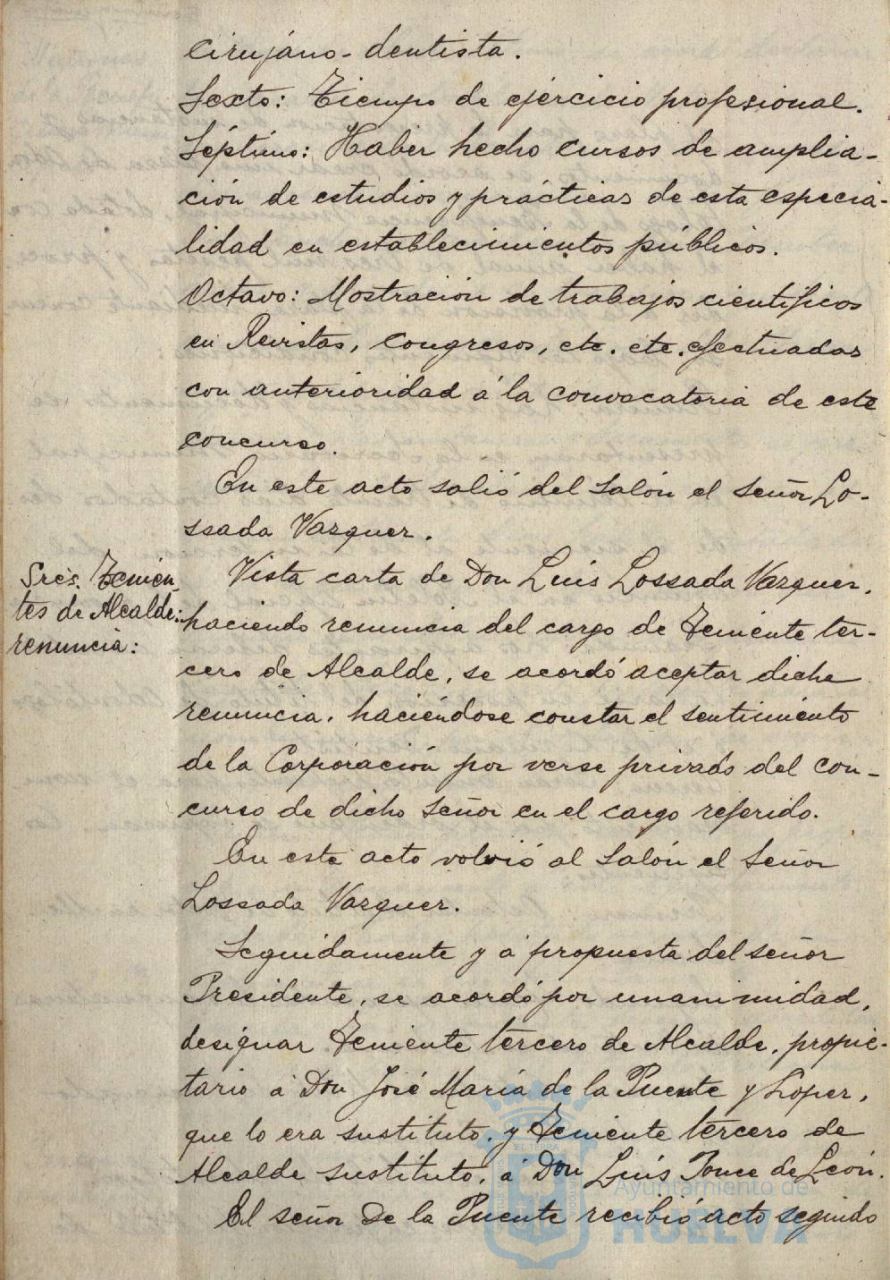 cirujano-dentista.
Sexto: Tiempo de ejercicio profesional.
Séptimo: Haber hecho cursos de amplia-
ción de estudios y prácticas de esta especia-
lidad en establecimientos públicos.
Octavo: Mostración de trabajos científicos
en Revistas, Congresos, etc. etc. efectuadas
con anterioridad á la convocatoria de este
concurso.
En este acto salió del salón el señor Lo-
ssada Vazquez.
Sres. Tenien-
tes de Alcalde:
renuncia:
Vista carta de Don Luis Lossada Vazquez,
haciendo renuncia del cargo de Teniente ter-
cero de Alcalde, se acordó aceptar dicha
renuncia, haciéndose constar el sentimiento
de la Corporación por verse privado del con-
curso de dicho señor en el cargo referido.
En este acto volvió al salón el señor
Lossada Vazquez.
Seguidamente y á propuesta del señor
Presidente, se acordó por unanimidad,
designar Teniente tercero de Alcalde, propie-
tario á Don José María de la Puente y López,
que lo era sustituto, y Teniente tercero de
Alcalde sustituto, á Don Luis Ponce de León.
El señor de la Puente recibió acto seguido
Ayuntamiento de
HUELVA